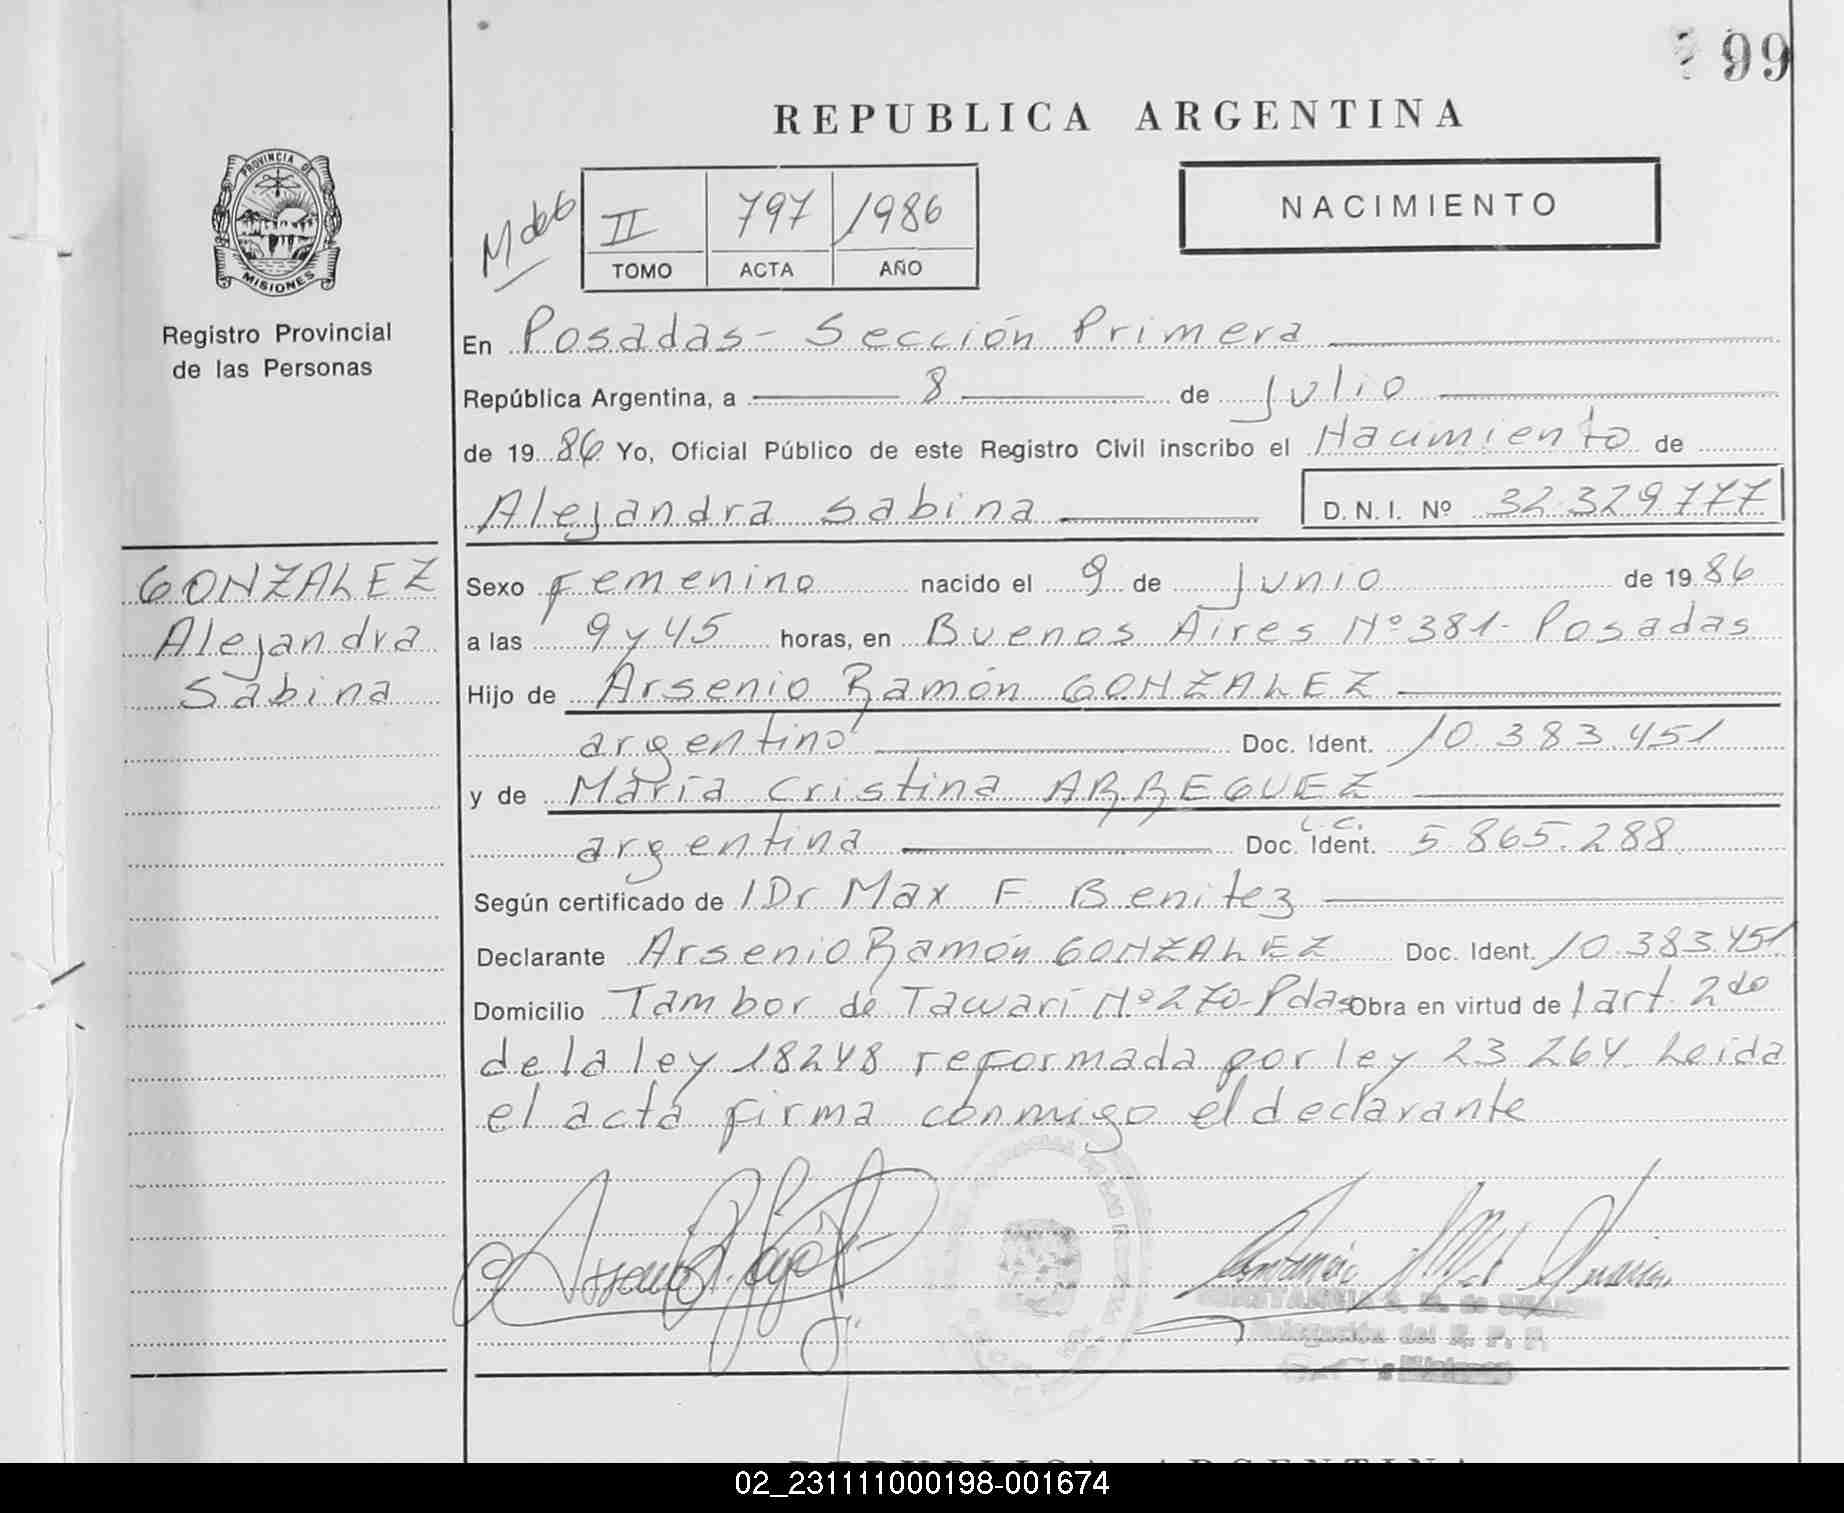 99
REPUBLICA ARGENTINA
PROVINCIA DE
MISIONES
Registro Provincial
de las Personas
II 797 1986
TOMO ACTA AÑO
NACIMIENTO
En Posadas - Sección Primera
República Argentina, a 8 de Julio
de 19 86 Yo, Oficial Público de este Registro Civil inscribo el Nacimiento de
Alejandra Sabina D.N.I. Nº 32.329.777
GONZALEZ
Alejandra
Sabina
Sexo femenino nacido el 9 de Junio de 19 86
a las 9 y 45 horas, en Buenos Aires Nº 381 - Posadas
Hijo de Arsenio Ramón GONZALEZ
argentino Doc. Ident. 10.383.451
y de María Cristina ARREGUEZ
L.C.
argentina Doc. Ident. 5.865.288
Según certificado de / Dr Max F Benitez
Declarante Arsenio Ramón GONZALEZ Doc. Ident. 10.383.451
Domicilio Tambor de Tawari Nº 270 - Pdas Obra en virtud de / art. 2do
de la ley 18248 reformada por ley 23.264. Leida
el acta firma conmigo el declarante
Delegación del R. P. P.
02_231111000198-001674